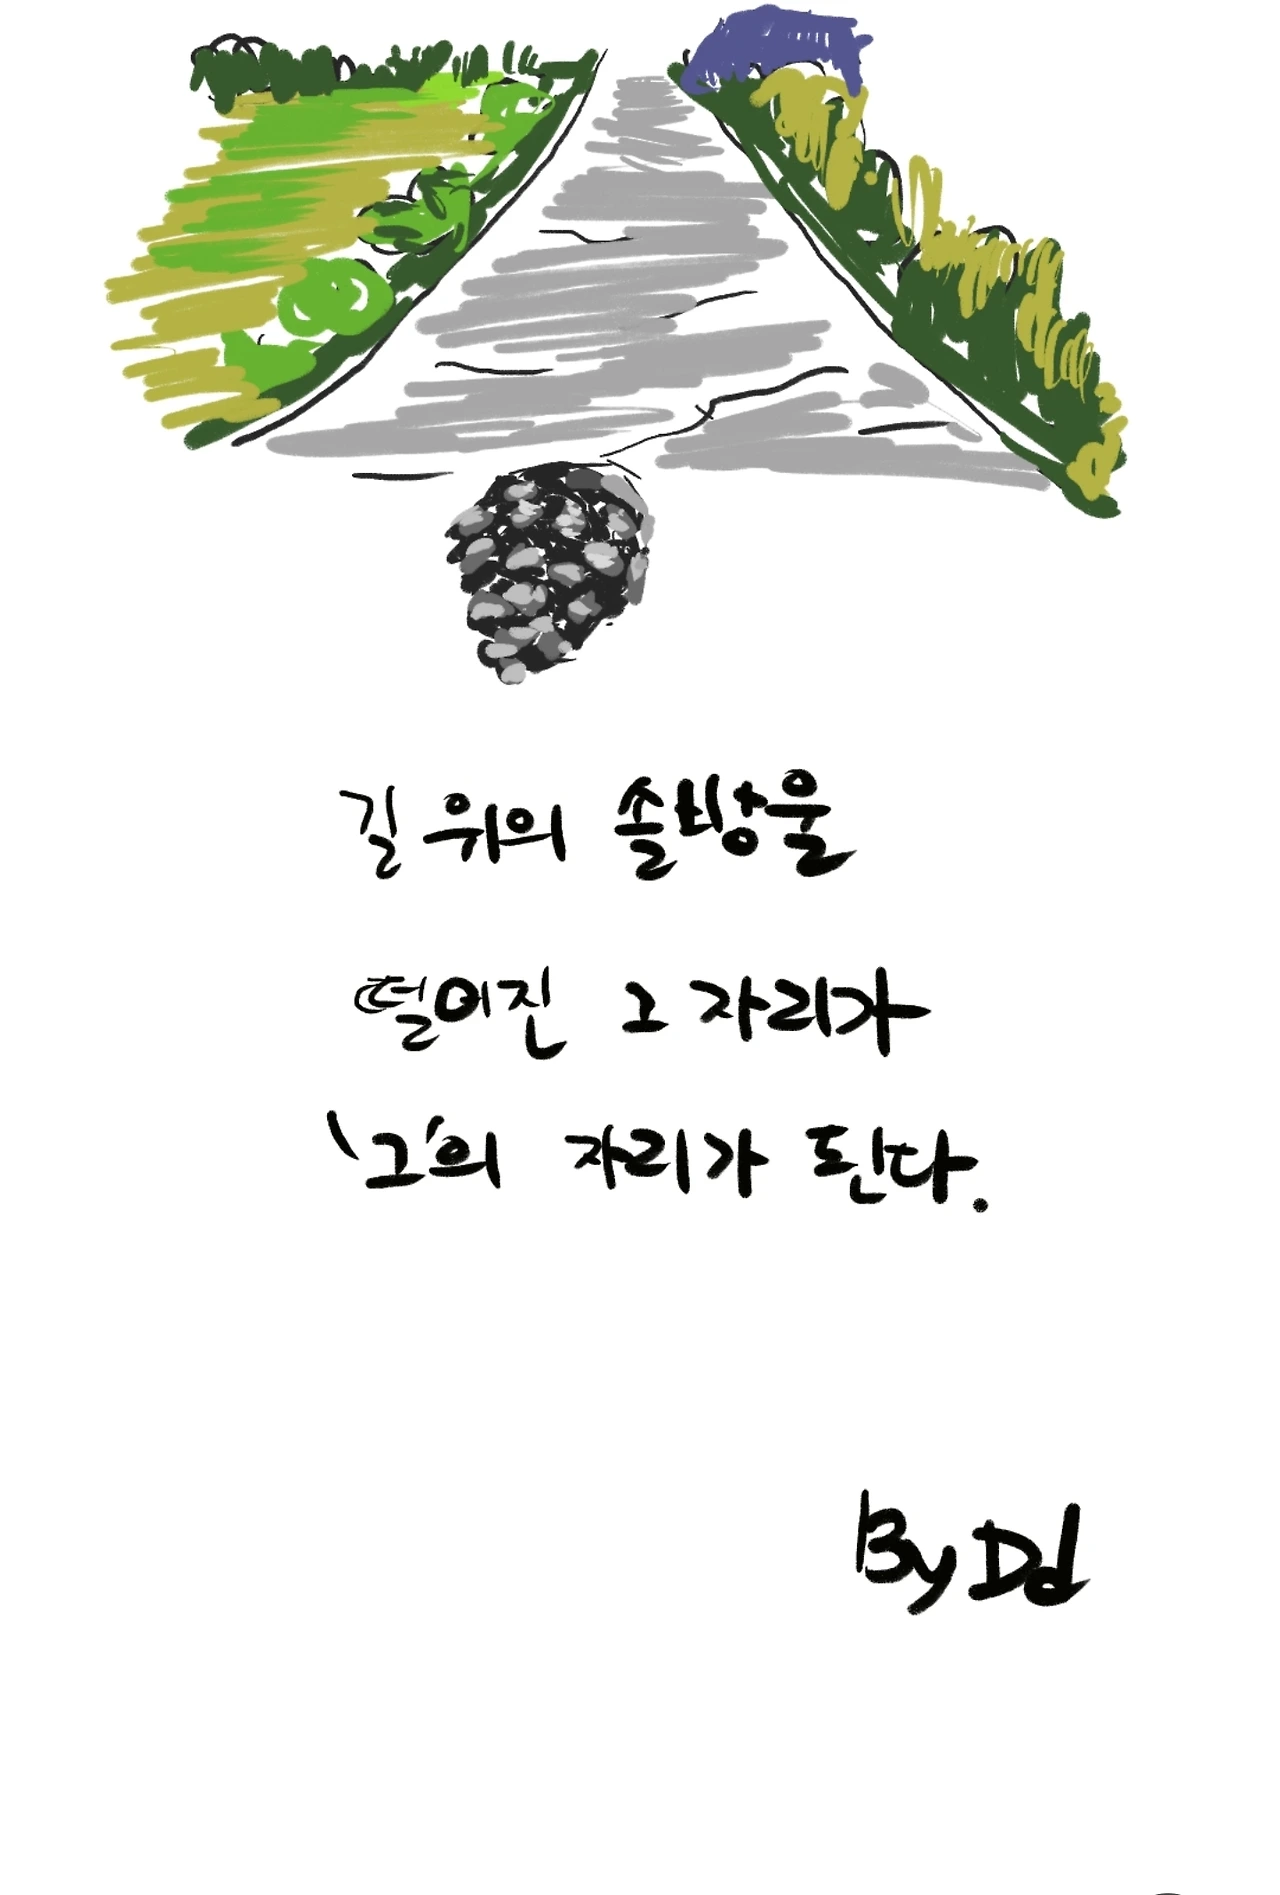 길 위의 솔방울
떨어진 그 자리가
'그'의 자리가 된다.
By Dd